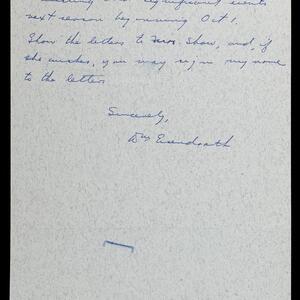 significant events
next season beginning Oct 1.
Show the letters to Mrs. Shaw, and, if
she wishes, you may sign my name
to the letters
Sincerely,
Wm Eisendrath